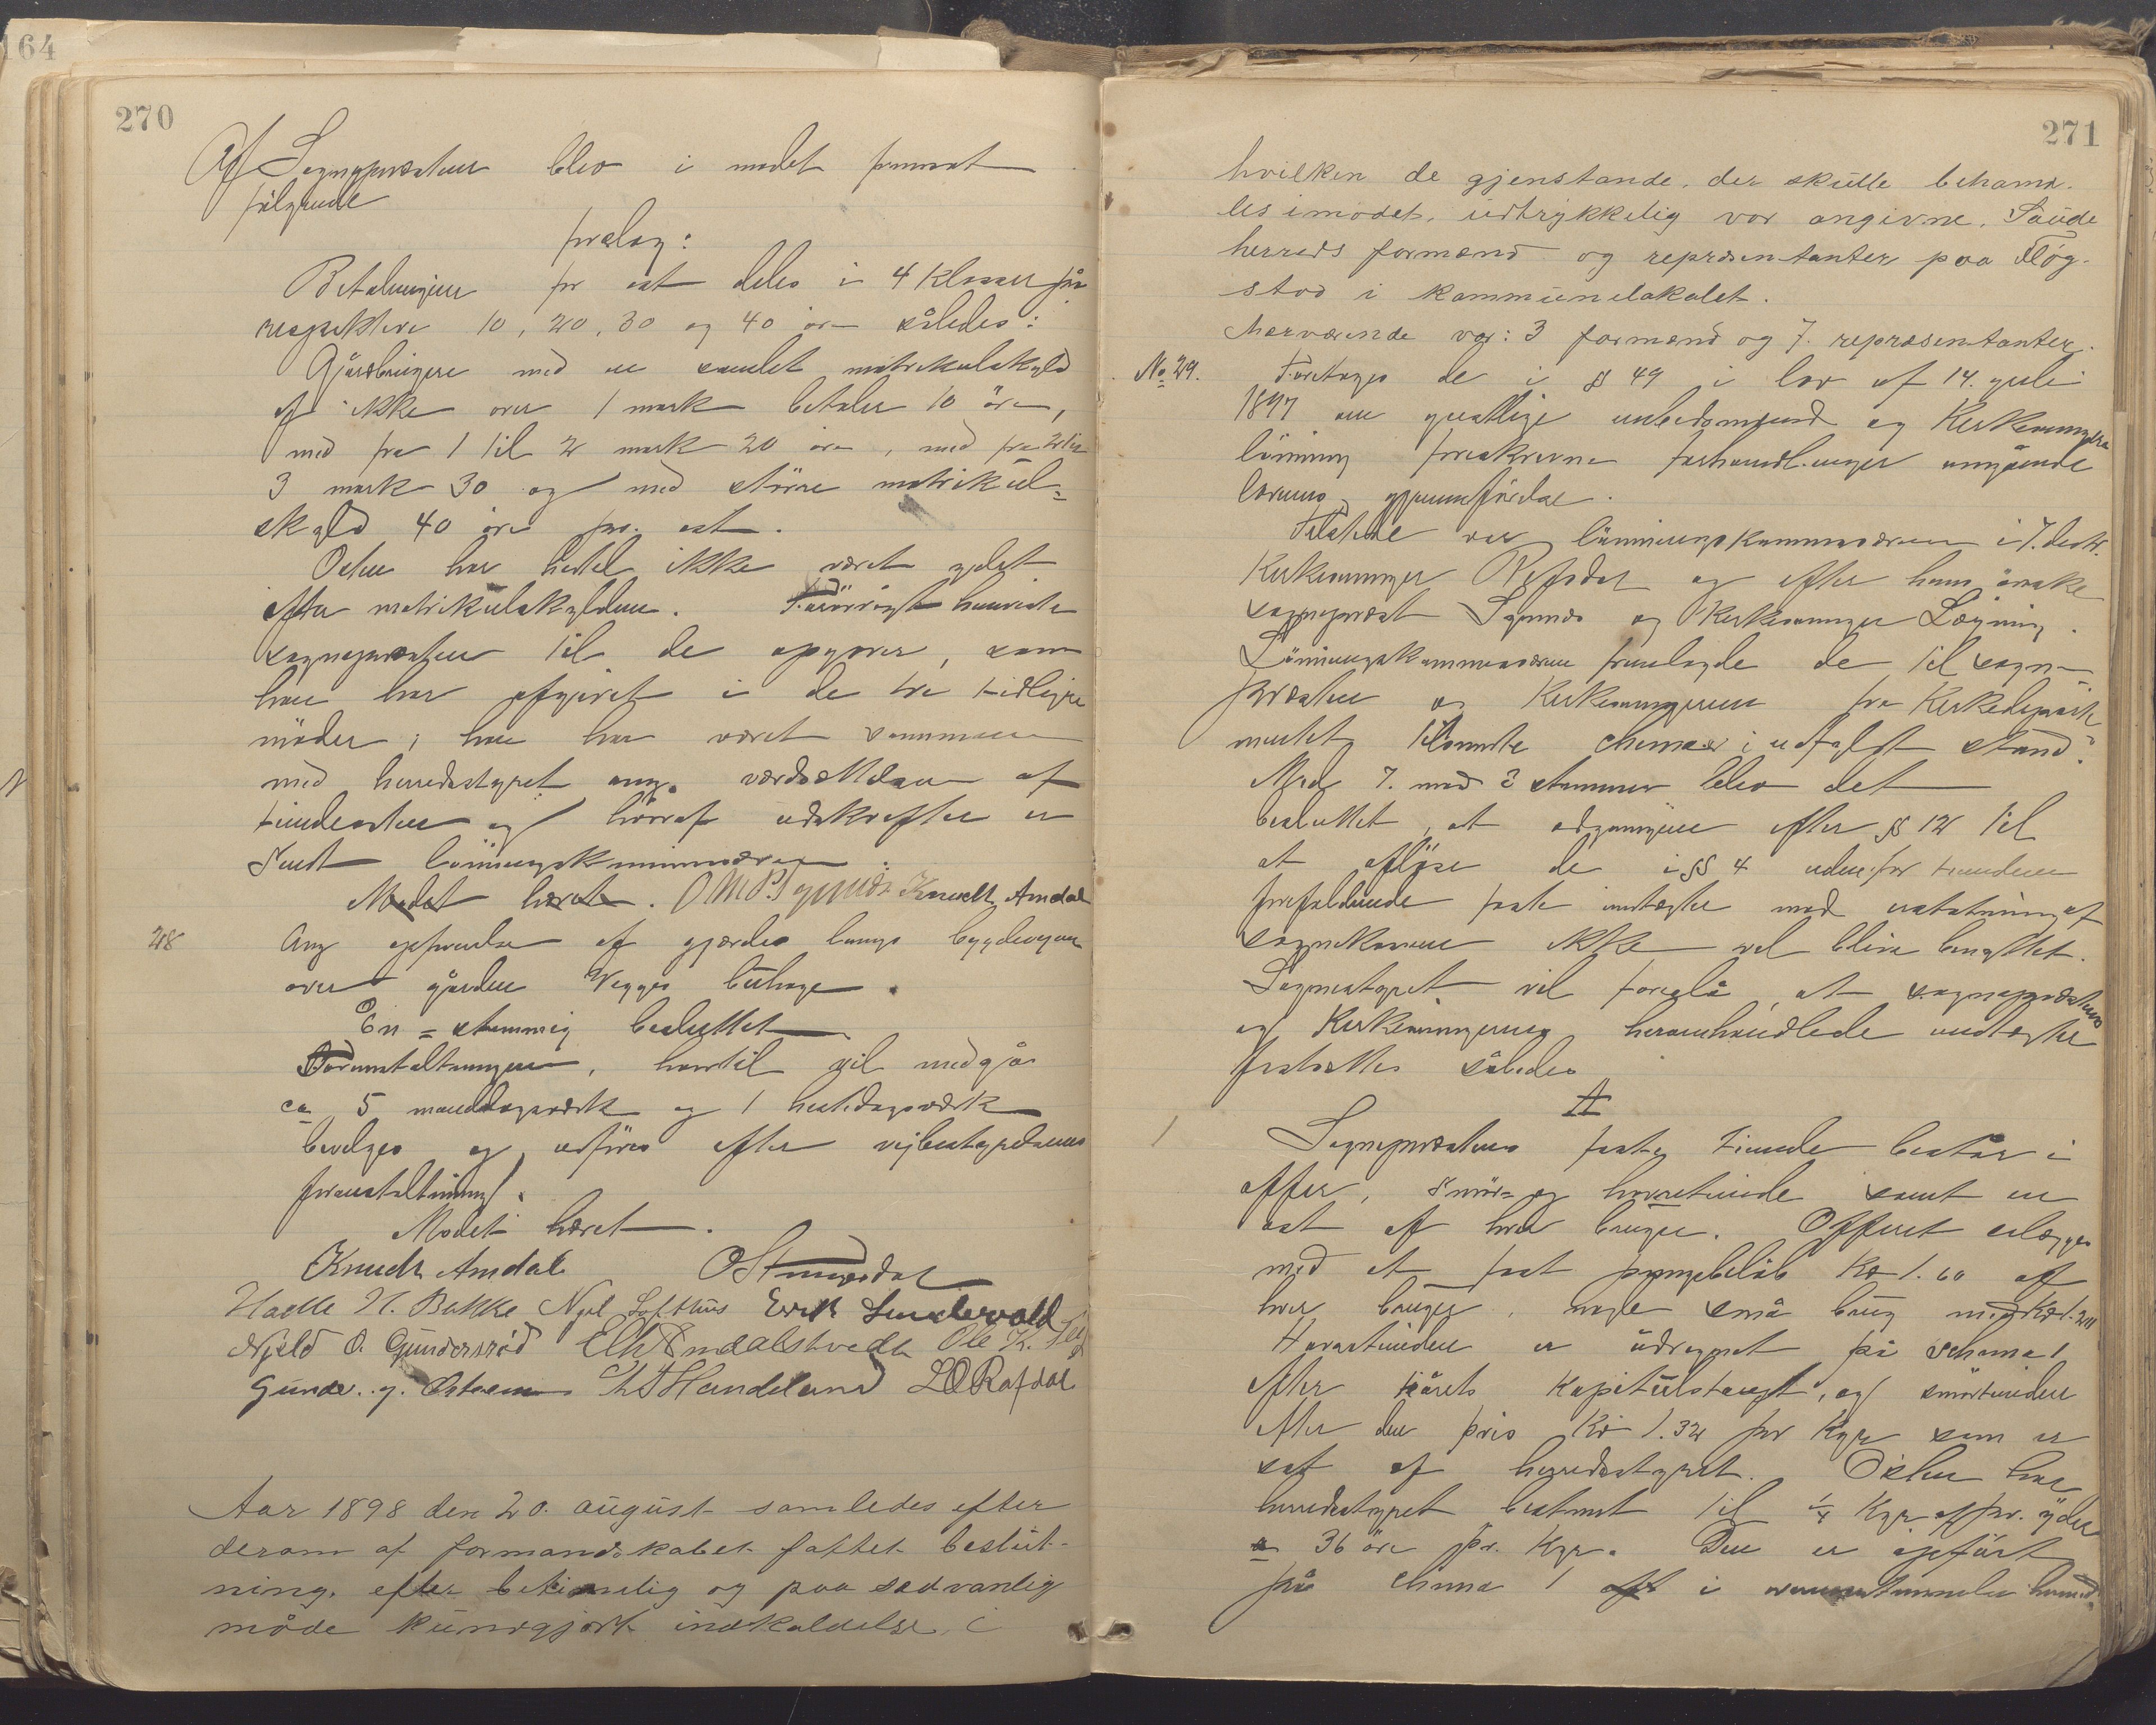 164
270
Af Sognepræsten blev i mødet fremsat
følgende
forslag:
Betalingen for ost deles i 4 klasser på
respektive 10, 20, 30 og 40 øre således:
Gårdbrugere med en samlet matrikulskyld
af ikke over 1 mark betaler 10 øre,
med fra 1 til 2 mark 20 øre, med fra 2 til
3 mark 30 og med større matrikul-
skyld 40 øre pr. ost.
Osten har hidtil ikke været ydet
efter matrikulskylden. Forøvrigt henviste
sognepræsten til de opgaver, som
han har afgivet i de tre tidligere
møder; han har været sammen
med herredsstyret ang. værdsættelsen af
tiendeosten og hvoraf udskrifter er
sendt lønningskommissæren.
Mødet hævet. Knudt Amdal
28 Ang opførelse af gjærdes langs bygdeveien
over gården Vegges
En-stemmig besluttet
Foranstaltningen, hvortil vil medgå
ca 5 manddagsværk og 1 hestedagsværk
bevilges og udføres efter vejbestyrelsens
foranstaltning.
Mødet hævet.
Knudt Amdal
Halle N. Bakke Njel Lofthus
Njeld O. Gunderstød Ole K.
Gunder. J. Østrem Handeland L O Rafdal
Aar 1898 den 20. august samledes efter
derom af formandskabet fattet beslut-
ning, efter betimelig og paa sædvanlig
måde kundgjort indkaldelse, i
271
hvilken de gjenstande, der skulle behand-
les i mødet, udtrykkelig var angivne, Saude
herreds formænd og repræsentanter paa Fløg-
stad i kommunelokalet.
Nærværende var: 3 formænd og 7. repræsentanter.
No 29. Foretoges de i § 49 i lov af 14. juli
1897 om gejstlige embedsmænd og Kirkesangeres
lønning foreskrevne forhandlinger angående
lovens gjennemførelse.
Tilstede var lønningskommissæren i 7. distr.
Kirkesanger Refsdal og efter hans ønske
sogneprest og Kirkesanger Løgning.
Lønningskommissæren fremlagde de til sogne-
præsten og Kirkesangeren fra Kirkedeparte-
mentet tilsendte schemaer i udfyldt stand.
Med 7. mod 3 stemmer blev det
besluttet, at adgangen efter § 12 til
at afløse de i § 4 udenfor tienden
forefaldende faste indtægter med erstatning af
sognekassen ikke vil blive benyttet.
Sognestyret vil foreslå, at sognepræstens
og Kirkesangerens heromhandlede indtægter
fastsættes således
A
1 Sognepræstens faste tiende består i
offer, smør- og havretiende samt en
ost af hver bruger. Offeret erlægges
med et fast pengebeløb Kr 1.60 af
hver bruger, nogle små brug med Kr 1.20
Havretienden er udregnet på schema 1
efter 10 årets Kapitelstakst, og smørtienden
efter den pris Kr 1.32 pr Kgr. som er
sat af herredsstyret. Osten har
herredsstyret bestemt til Kgr. af pr. yder
a 36 øre pr. Kgr. Den er opført
på schema 1 i